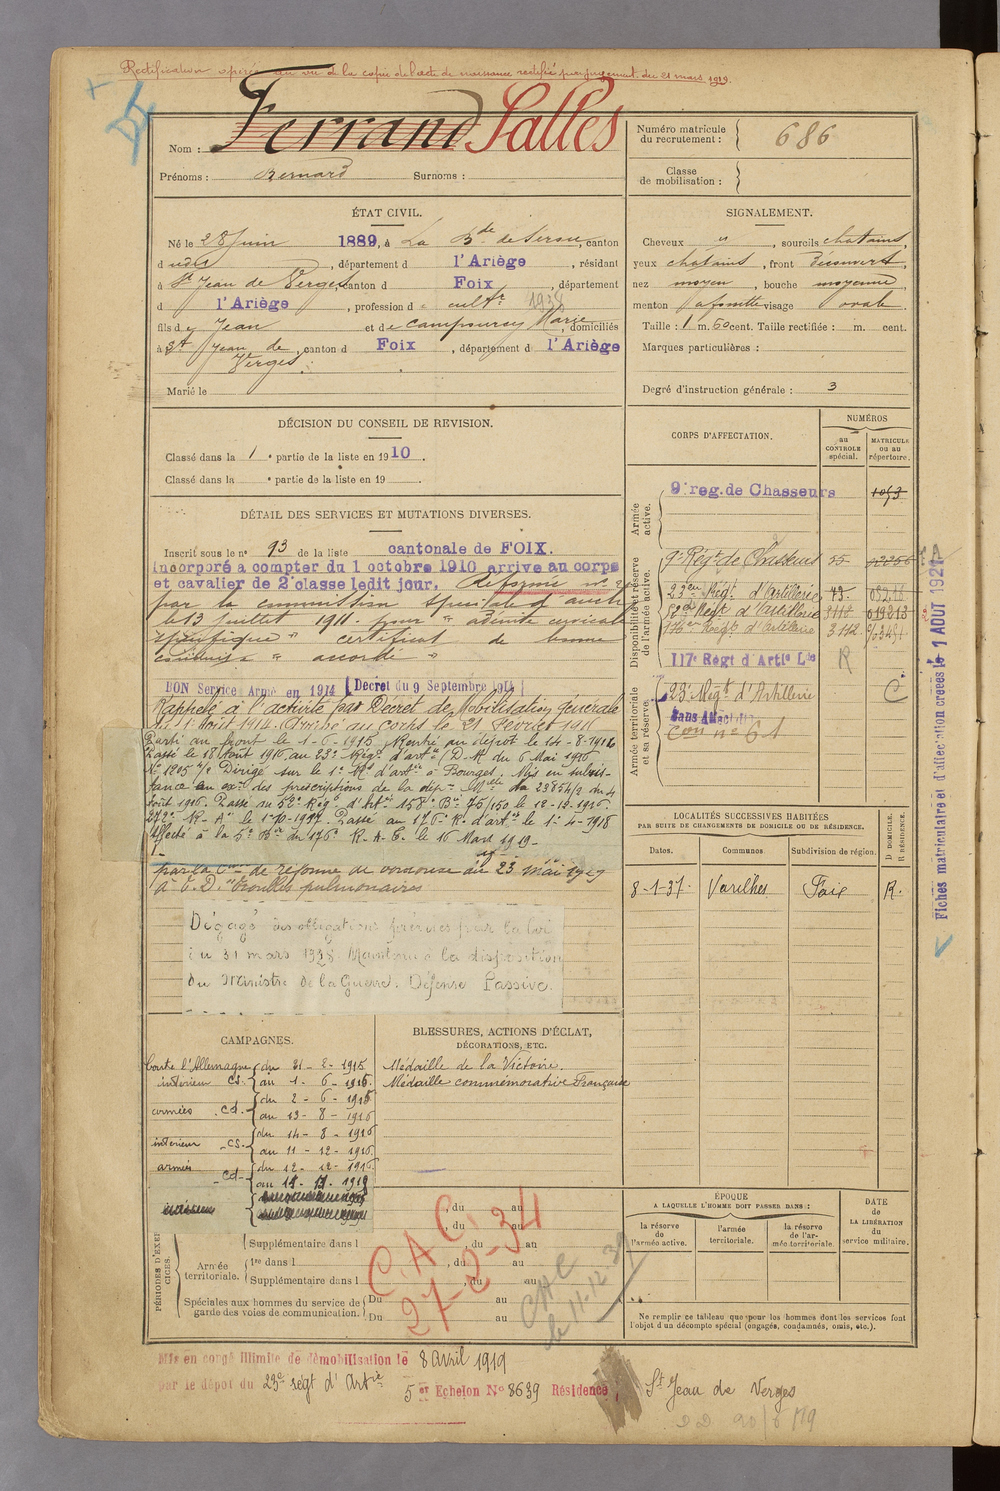 Rectification opérée au vu de la copie de l'acte de naissance rectifié par jugement du 21 mars 1919.
Nom : Ferrand Salles
Prénoms : Bernard Surnoms :
Numéro matricule du recrutement : 686
Classe de mobilisation :
ÉTAT CIVIL.
Né le 28 Juin 1889, à La B.de de Serou, canton
d udit, département d l'Ariège, résidant
à St Jean de Verges, canton d Foix, département
d l'Ariège, profession d cultr 1938
fils de Jean et de Campourcy Marie, domiciliés
à St Jean de Verges, canton d Foix, département d l'Ariège
Marié le
SIGNALEMENT.
Cheveux, sourcils chatains,
yeux chatains, front Découvert,
nez moyen, bouche moyenne,
menton à fossette visage ovale.
Taille : 1 m. 60 cent. Taille rectifiée : m. cent.
Marques particulières :
Degré d'instruction générale : 3
DÉCISION DU CONSEIL DE REVISION.
Classé dans la 1e partie de la liste en 1910.
Classé dans la e partie de la liste en 19
DÉTAIL DES SERVICES ET MUTATIONS DIVERSES.
Inscrit sous le n° 93 de la liste cantonale de FOIX.
Incorporé a compter du 1 octobre 1910 arrive au corps
et cavalier de 2e classe ledit jour. Réformé n° 2
par la commission spéciale d'Auch
le 13 juillet 1911. pour " adénite cervicale
spécifique " certificat de bonne
conduite " accordé "
BON Service Armé en 1914 (Decret du 9 Septembre 1914)
Rappelé à l'activité par Décret de Mobilisation Générale
du 1 Août 1914. Arrivé au corps le 21 Février 1915
Parti au front le 1-6-1915. Rentré au dépot le 14-8-1916
Passé le 18 Aout 1916 au 23e Régt d'artie (D.M. du 6 Mai 1916
N° 1205 Dirigé sur le 1er Rt d'artie à Bourges. Mis en subsis-
tance en exon des prescriptions de la dép. Mlle du 23854/3 du 4
Août 1916. Passé au 52e Régt d'Artie 158e Bie 75/150 le 12-12-1916.
272e R.A. le 1-10-1917. Passé au 176e R. d'artie le 1-4-1918
Affecté à la 5e Bie du 176e R.A.C. le 16 Mars 1919-
par la Con de réforme de du 23 mai 1919
à T.D. "Troubles pulmonaires
Dégagé des obligations prévues par la loi
du 31 mars 1928. Maintenu à la disposition
du Ministre de la Guerre. Défense Passive.
CORPS D'AFFECTATION.
NUMÉROS
au CONTROLE spécial.
MATRICULE ou au répertoire.
Armée active.
9e reg. de Chasseurs 1053
Disponibilité et réserve de l'armée active.
9e Régt de Chasseurs 55
23e Régt d'Artillerie 43
52e Régt d'Artillerie 3118 019213
176e Régt d'Artillerie 3112
117e Régt d'Artie Lde R
Armée territoriale et sa réserve.
23e Régt d'Artillerie C
Sans Affectation
LOCALITÉS SUCCESSIVES HABITÉES
PAR SUITE DE CHANGEMENTS DE DOMICILE OU DE RÉSIDENCE.
Dates. Communes. Subdivision de région. D DOMICILE. R RÉSIDENCE.
8-1-37. Varilhes Foix R.
Fiches matriculaire et d'affectation créées le 1 AOUT 1921
CAMPAGNES.
Contre l'Allemagne du 21-2-1915
intérieur CS. au 1-6-1915.
du 2-6-1915
armées Cd. au 13-8-1916
du 14-8-1916
intérieur CS. au 11-12-1916
armées du 12-12-1916
Cd au
BLESSURES, ACTIONS D'ÉCLAT,
DÉCORATIONS, ETC.
Médaille de la Victoire.
Médaille commémorative Française
PÉRIODES D'EXERCICES.
, du au
, du au
Supplémentaire dans l , du au
Armée territoriale.
1re dans l , du au
Supplémentaire dans l , du au
Spéciales aux hommes du service de garde des voies de communication.
Du au
Du au
C.A.C
27-2-34
CAC
le 11.12.39
ÉPOQUE
A LAQUELLE L'HOMME DOIT PASSER DANS :
la réserve de l'armée active.
l'armée territoriale.
la réserve de l'armée territoriale.
DATE DE LA LIBÉRATION du service militaire.
Ne remplir ce tableau que pour les hommes dont les services font
l'objet d'un décompte spécial (engagés, condamnés, omis, etc.).
Mis en congé illimité de démobilisation le 8 Avril 1919
par le dépôt du 23e régt d'Artie 5er Echelon N° 8639 Résidence, St Jean de Verges